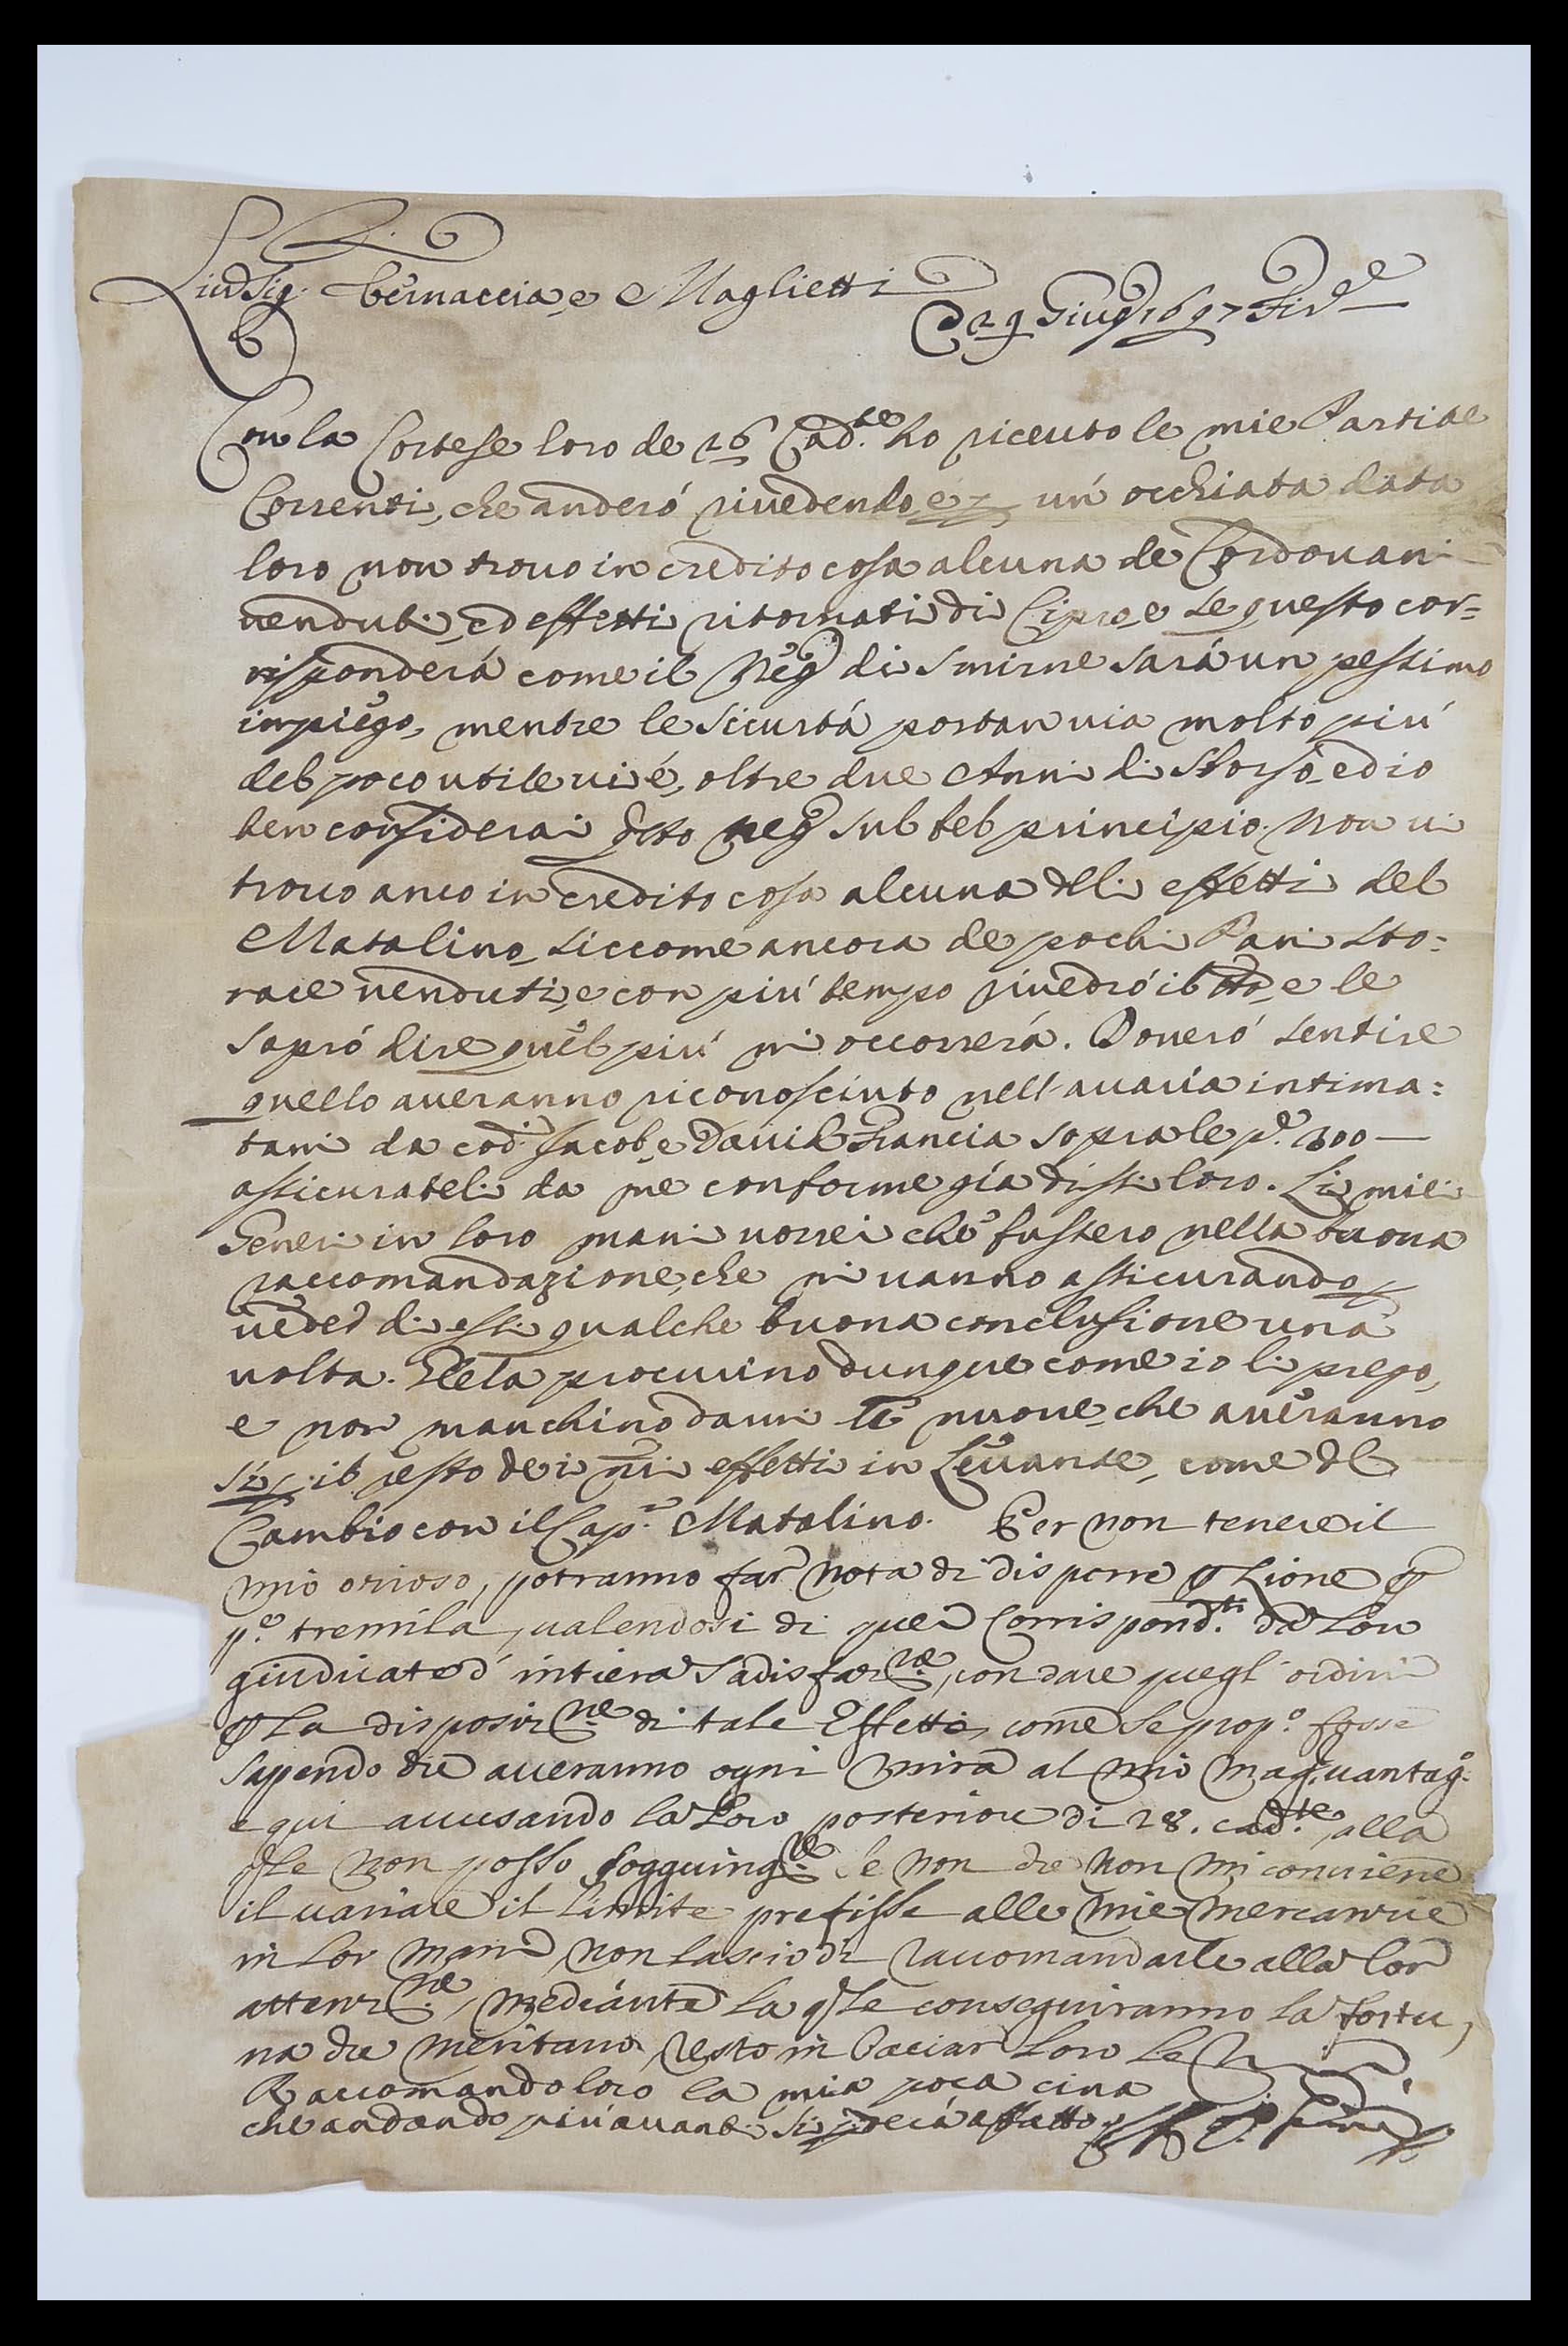 Liu.o Sig. Bernaccia, e Maglietti
29 Giug.o 1697 Fir.e
Con la Cortese loro de 26 Cad.te ho riceuto le mie Partite
Correnti, che anderó riuedendo, e un' occhiata data
loro non trouo in credito cosa alcuna de Cordouani
uenduti, ed effetti ritornati di Cipro, e se questo cor=
risponderá come il Neg.o di Smirne sará un pessimo
impiego, mentre le Sicurtá portan uia molto piú
del poco utile ui é, oltre due Anni di Storso, ed io
ben considerai d.sto neg.o sul bel principio. Non ui
trouo anco in credito cosa alcuna dlli effetti del
Matalino, siccome ancora de pochi Pani Sto=
race uenduti, e con piú tempo riuedró il tto, e le
sapró dire quel piú mi occorrerá. Doueró sentire
quello aueranno riconosciuto nell' auaria intima=
tami da cod.i Jacob, e Dauid Francia sopra le p.e 300 —
assicurateli da me conforme giá dissi loro. Li miei
Generi in loro mani uorrei che fussero nella buona
raccomandazione, che mi uanno assicurando p
ueder di essi qualche buona conclusione una
uolta. Me la procurino dunque come io li prego,
e non manchino darmi le nuoue, che aueranno
Si p il resto dei mi effetti in Leuante, come dl
Cambio con il Cap.no Matalino. Per non tenere il
mio ozioso, potranno far nota di disporre p Lione p
p.e tremila, ualendosi di quei Corrispond.ti da Loro
giudicate d' intiera Sadisfaz.ne, con dare quegl' ordini
p La disposiz.ne di tale Effetto, come se prop.o fosse
Sapendo che aueranno ogni mira al mio mag. uantag.o
e qui accusando la Loro posteriore di 28. cad.te, alla
q.le non posso soggiung.re se non che non mi conuiene
il uariare il Limite prefisse alle mie mercanzie
in Lor mani, non lascio di raccomandarle alla Lor
attenz.ne, mediánte la q.le conseguiranno la fortu,
na che meritano, resto in baciar Loro Le
Raccomando loro la mia poca cina
che andando piú auanti si p